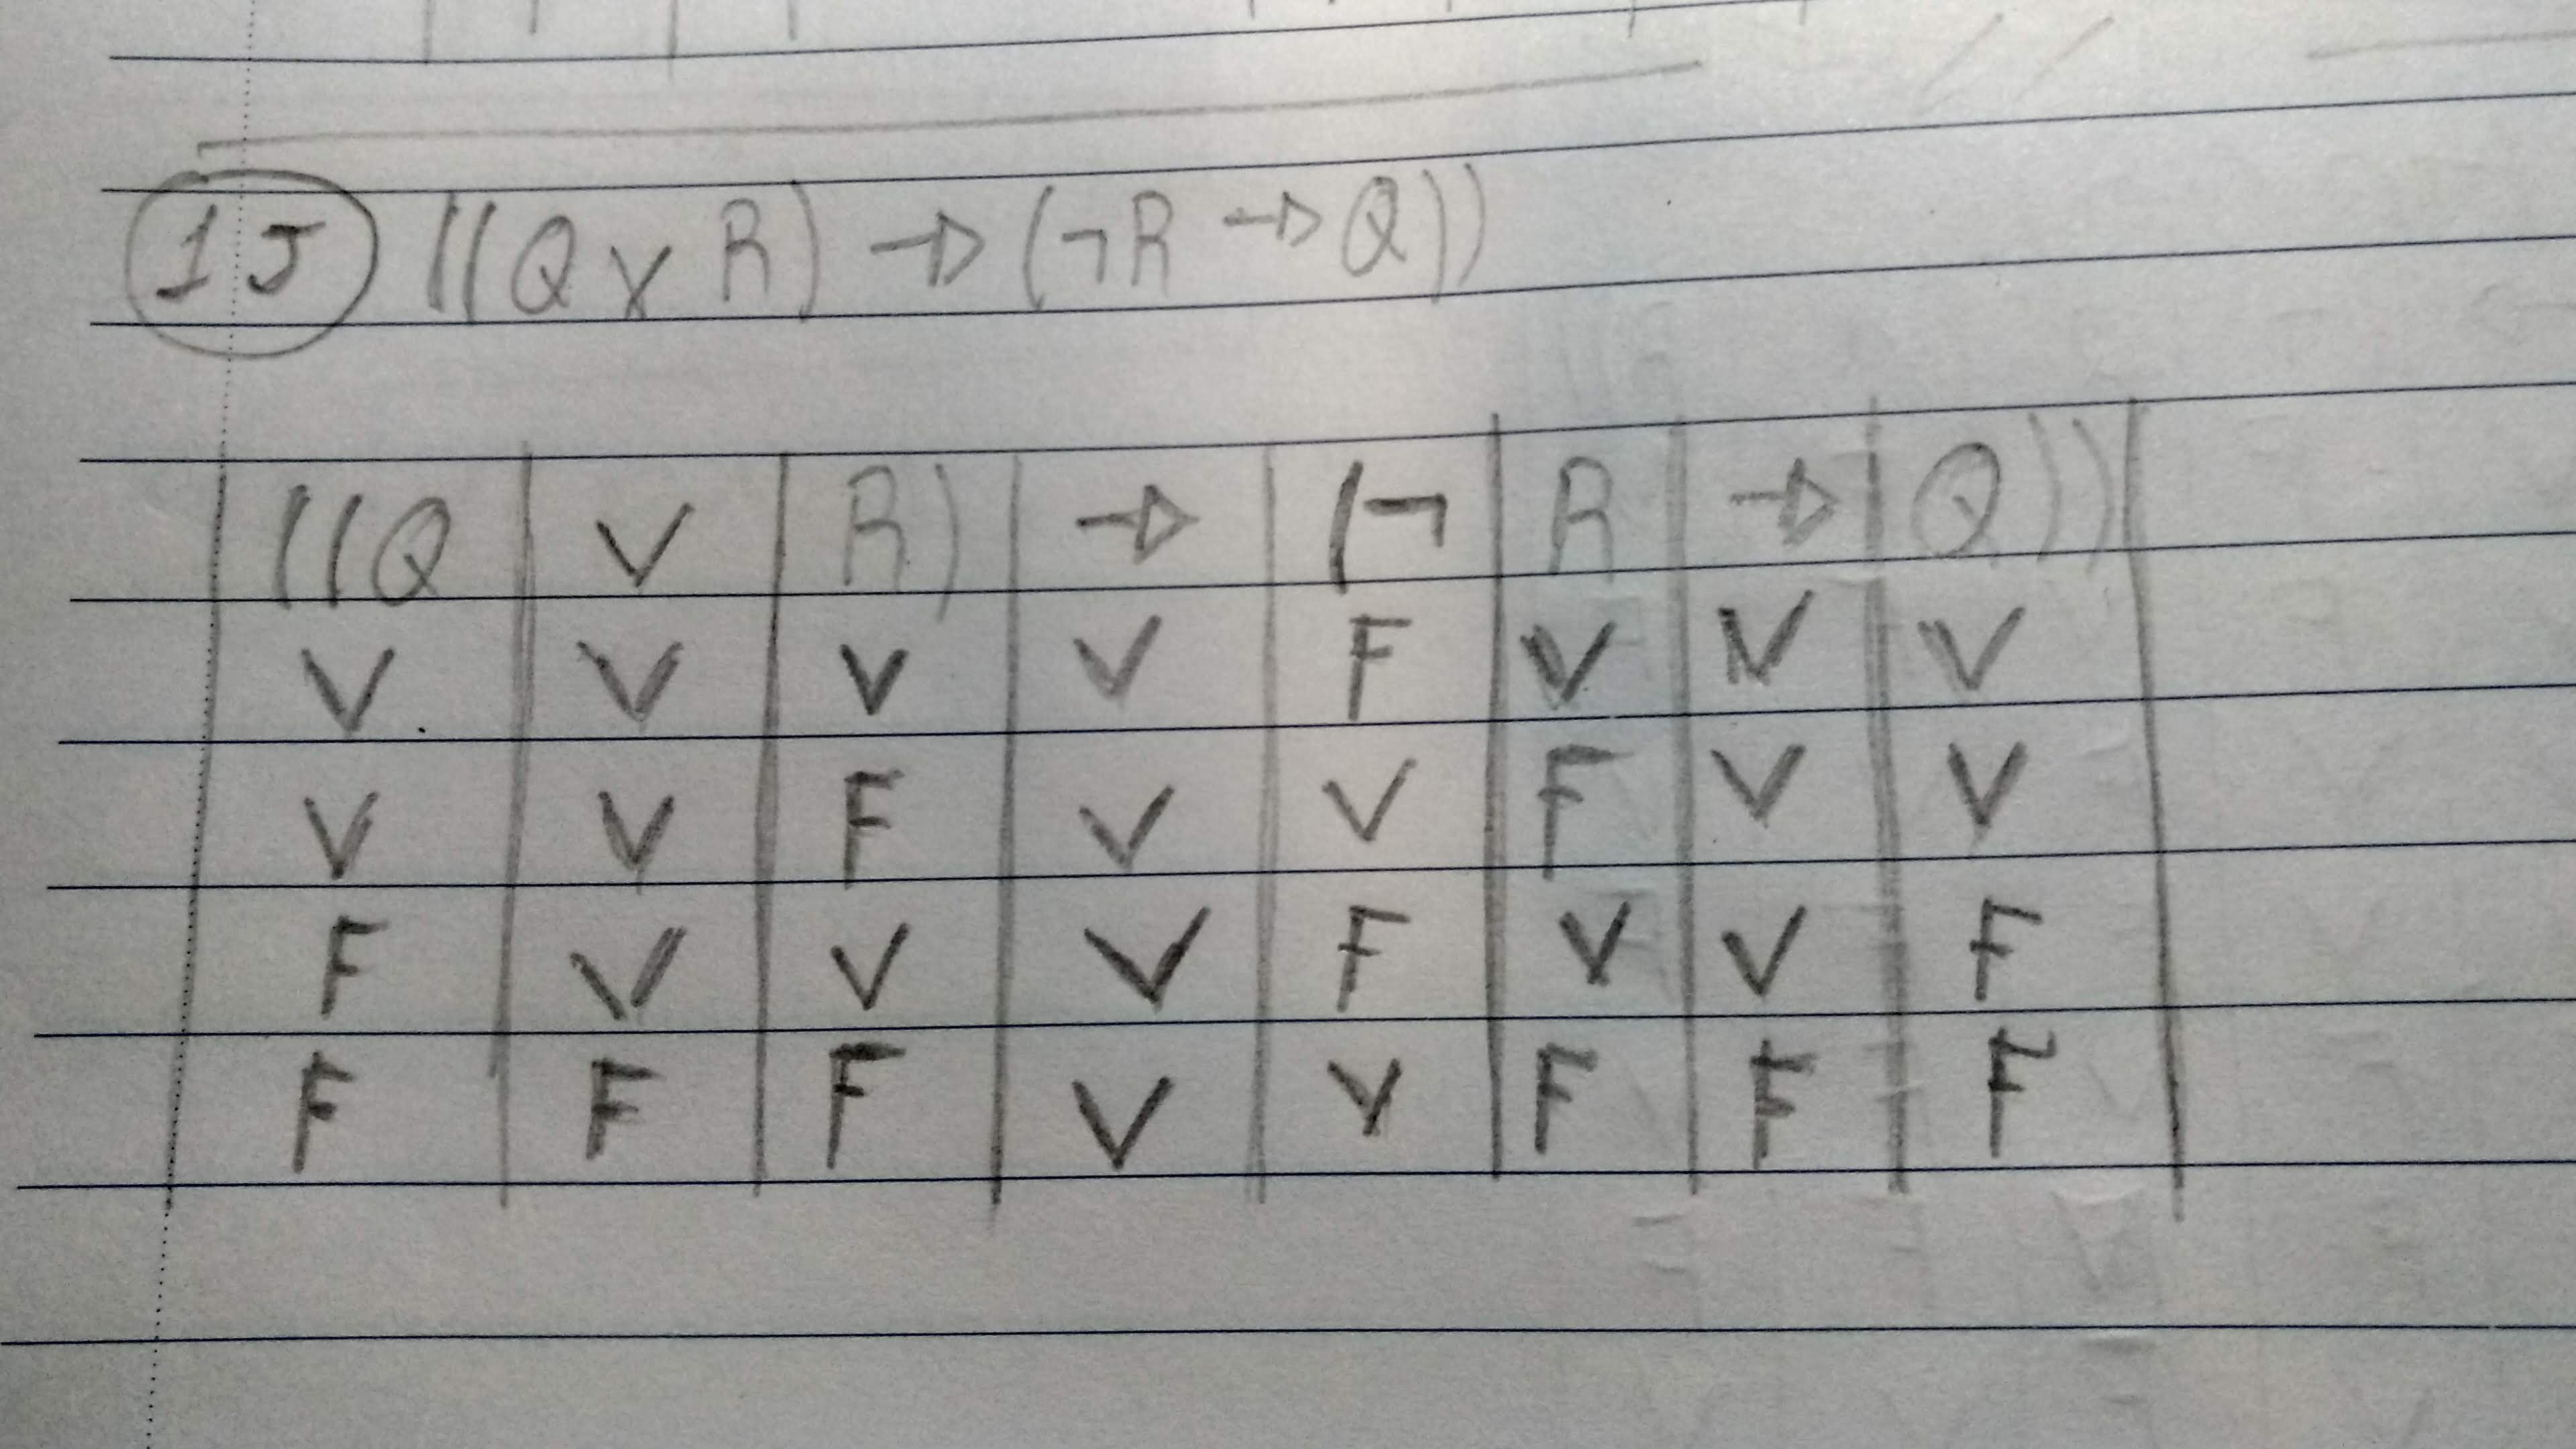 1J ((Q v R) → (¬R → Q))
((Q V R) → (¬ R → Q))
V V V V F V V V
V V F V V F V V
F V V V F V V F
F F F V V F F F